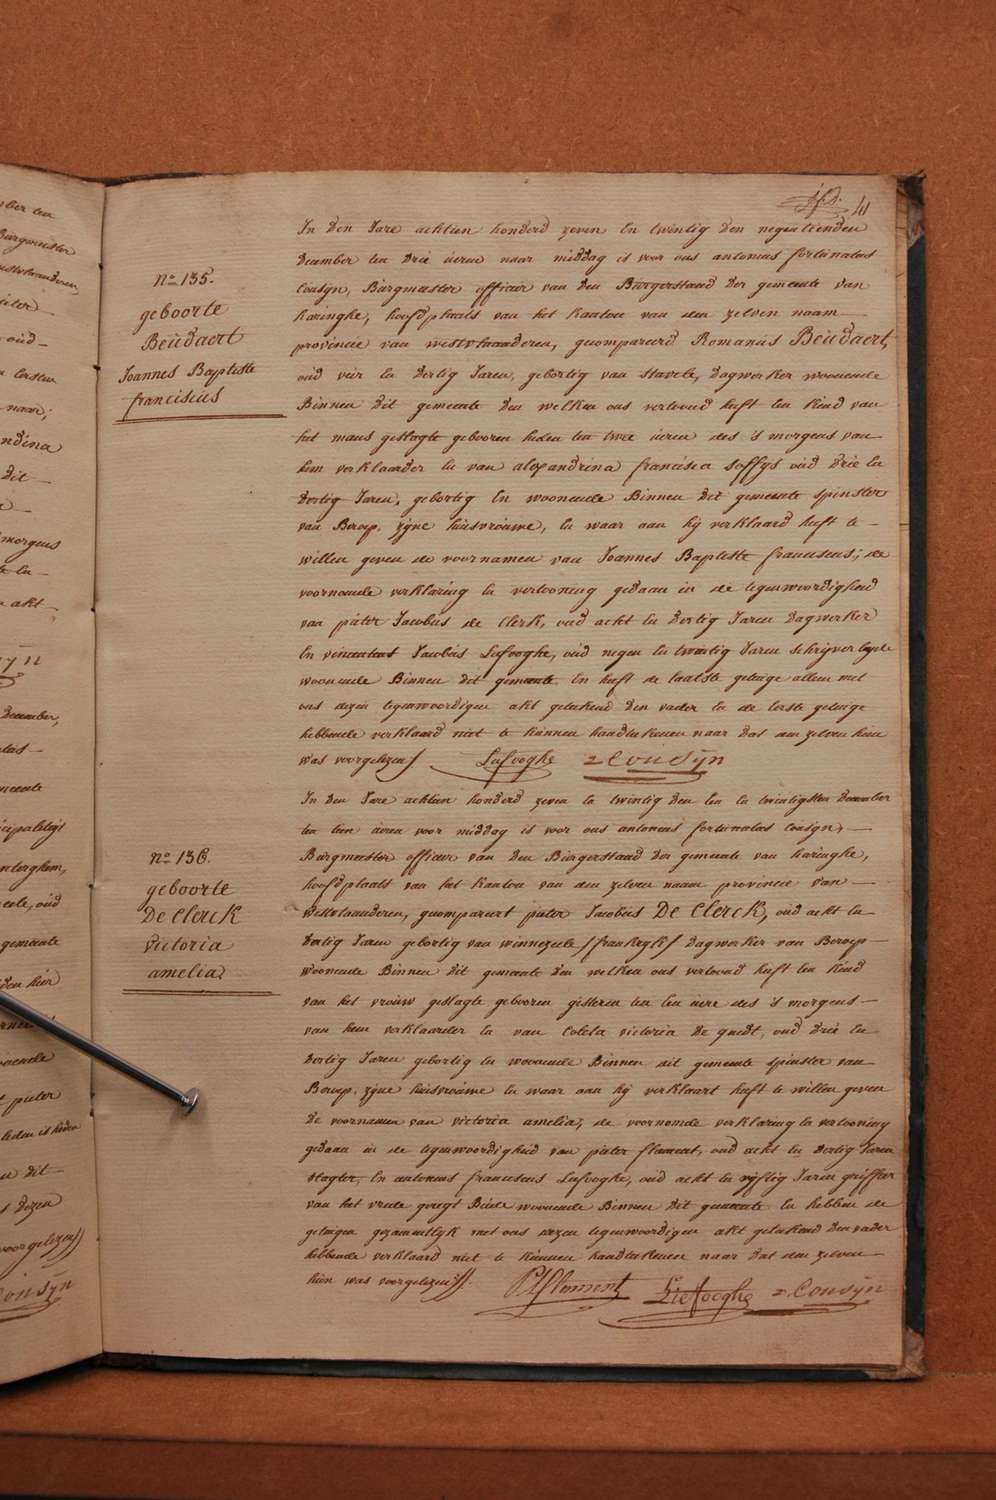 41
N° 135.
geboorte
Beudaert
Joannes Baptiste
franciscus
In den Jare achtien honderd zeven En twintig den negentienden
december ten drie ueren naar middag is voor ons antonius fortunatus
Cousyn, Burgmeester officier van den Burgerstand der gemeente van
haringhe, hoofdplaats van het kanton van den zelven naam
provincie van westvlaanderen, gecompareerd Romanus Beudaert,
oud vier En dertig Jaren, gebortig van stavele, dagwerker woonende
Binnen dit gemeente den welken ons vertoond heeft Een kind van
het mans geslagte gebooren heden ten twee ueren des 's morgens van
hem verklaarder En van alexandrina francisca soffys oud drie En
dertig Jaren, gebortig En woonende Binnen dit gemeente spinster
van Beroep, zyne huisvrouwe, En waar aan hy verklaard heeft te
willen geven de voornamen van Joannes Baptiste franciscus; de
voornoemde verklaring En vertooning gedaan in de tegenwoordigheid
van pieter Jacobus de Clerk, oud acht En dertig Jaren dagwerker
En vincentius Jacobus Liefooghe, oud negen En twintig Jaren schryver Beyde
woonende Binnen dit gemeente En heeft de laatste getuige alleen met
ons dezen tegenwoordigen akt geteekend den vader En de Eerste getuige
hebbende verklaard niet te kunnen handteekenen naar dat aen zelven hem
was voorgelezen
Liefooghe Cousyn
N° 136.
geboorte
De Clerck
victoria
amelia
In den Jare achtien honderd zeven En twintig den Een En twintigsten december
ten tien ueren voor middag is voor ons antonius fortunatus Cousyn,
Burgmeester officier van den Burgerstand der gemeente van haringhe,
hoofdplaats van het kanton van den zelven naam provincie van
westvlaanderen, gecompareert pieter Jacobus De Clerck, oud acht En
dertig Jaren gebortig van winnezeele /frankryk/ dagwerker van Beroep
woonende Binnen dit gemeente den welken ons vertoond heeft Een kind
van het vrouw geslagte gebooren gisteren ten Een uere des 's morgens
van hem verklaarder En van Coleta victoria De quidt, oud drie En
dertig Jaren gebortig En woonende Binnen dit gemeente spinster van
Beroep, zyne huisvrouwe En waar aan hy verklaart heeft te willen geven
De voornamen van victoria amelia, de voornomde verklaring En vertooning
gedaan in de tegenwoordigheid van pieter flament, oud acht En dertig Jaren
slagter, En antonius franciscus Liefooghe, oud acht En vyftig Jaren griffier
van het vrede geregt Beide woonende Binnen dit gemeente En hebben de
getuigen gezamentlyk met ons dezen tegenwoordigen akt geteekend den vader
hebbende verklaard niet te kunnen handteekenen naar dat aen zelven
hun was voorgelezen
P flament Liefooghe Cousyn